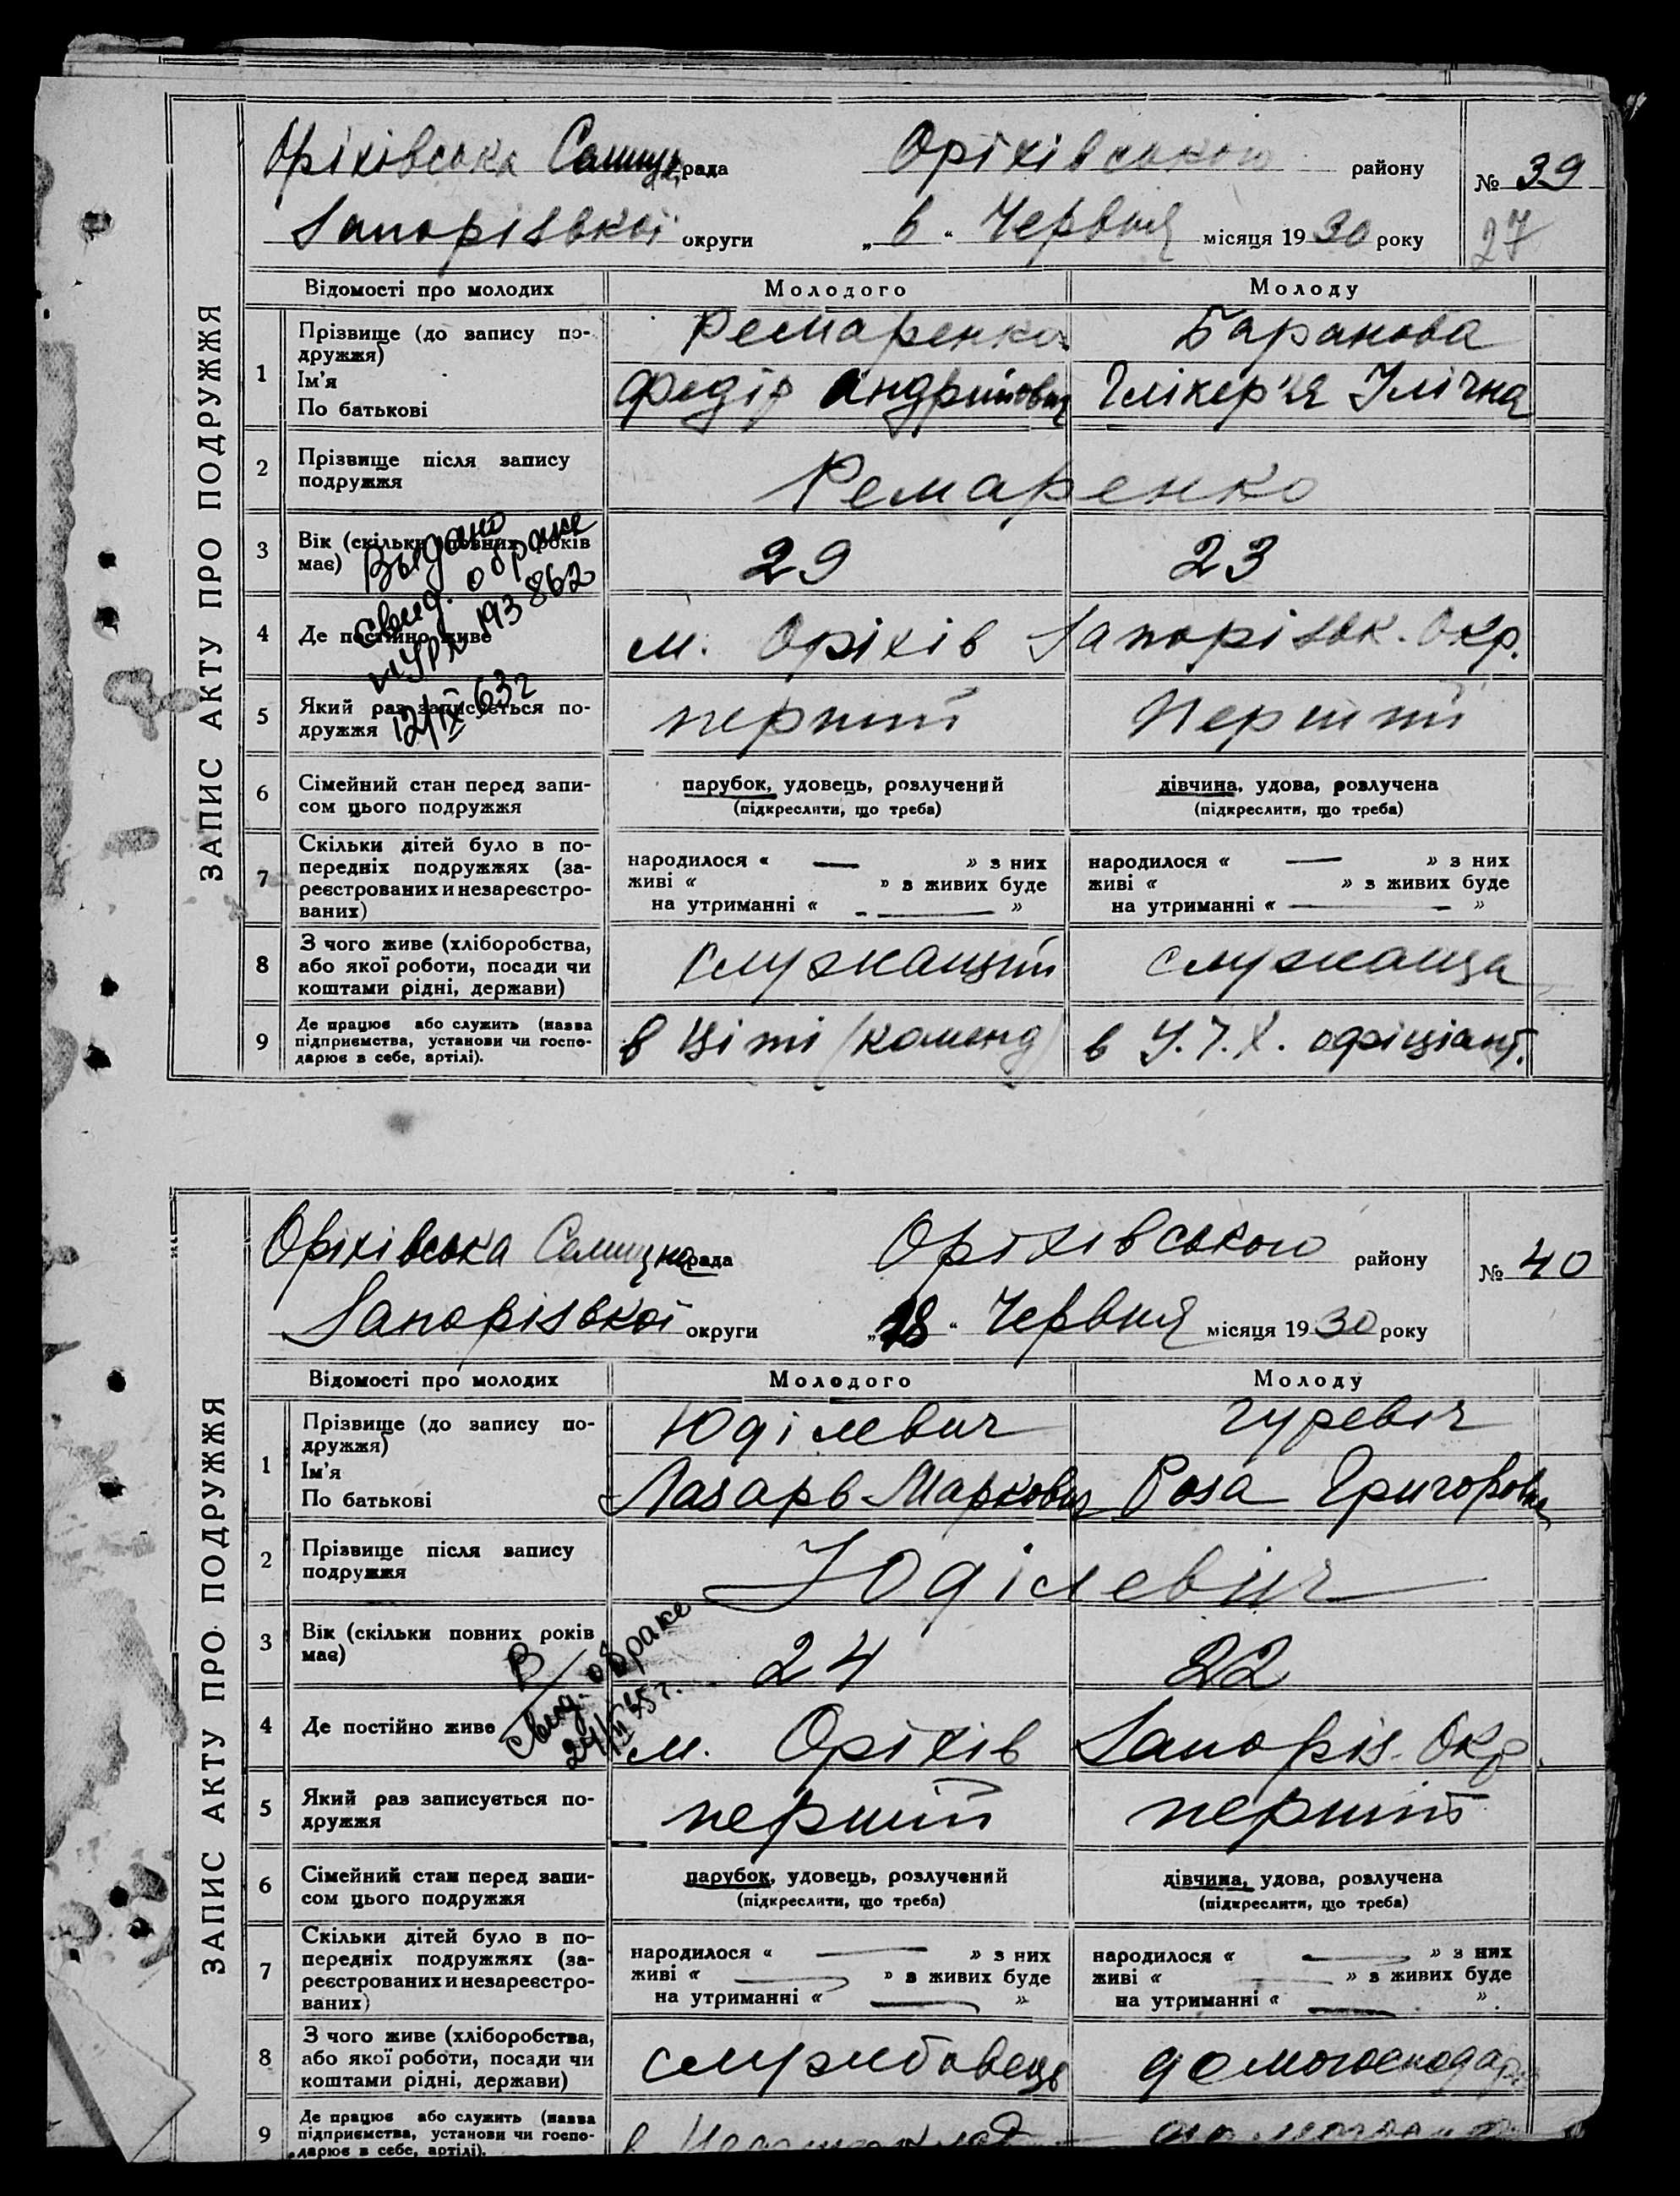 ЗАПИС АКТУ ПРО ПОДРУЖЖЯ
Оріхівська Селищ. рада Оріхівського району № 39
Запорізької округи „6“ Червня місяця 1930 року 27
Відомості про молодих Молодого Молоду
1 Прізвище (до запису по- Ремаренко Баранова
дружжя)
Ім'я Федір Андрійович Глікер'я Ілічна
По батькові
2 Прізвище після запису Ремаренко
подружжя
3 Вік (скільки повних років 29 23
має)
Выдано
свид. о браке
193862
12/IX 63г
4 Де постійно живе м. Оріхів Запорізьк. Окр.
5 Який раз записується по- перший Перший
дружжя
6 Сімейний стан перед запи- парубок, удовець, розлучений дівчина, удова, розлучена
сом цього подружжя (підкреслити, що треба) (підкреслити, що треба)
7 Скільки дітей було в по- народилося « — » з них народилося « — » з них
передніх подружжях (за- живі « » з живих буде живі « » з живих буде
реєстрованих и незареєстро- на утриманні « — » на утриманні « — »
ваних)
8 З чого живе (хліборобства, служащий служаща
або якої роботи, посади чи
коштами рідні, держави)
9 Де працює або служить (назва в (коменд) в офіціант.
підприємства, установи чи госпо-
дарює в себе, артілі).
ЗАПИС АКТУ ПРО ПОДРУЖЖЯ
Оріхівська Селищна рада Оріхівського району № 40
Запорізької округи „18“ Червня місяця 1930 року
Відомості про молодих Молодого Молоду
1 Прізвище (до запису по- Юділевич Гуревіч
дружжя)
Ім'я Лазарь Маркович Роза Григоровна
По батькові
2 Прізвище після запису Юділевич
подружжя
3 Вік (скільки повних років 24 22
має)
В/
свид. о браке
45г.
4 Де постійно живе м. Оріхів Запоріз. Окр.
5 Який раз записується по- перший перший
дружжя
6 Сімейний стан перед запи- парубок, удовець, розлучений дівчина, удова, розлучена
сом цього подружжя (підкреслити, що треба) (підкреслити, що треба)
7 Скільки дітей було в по- народилося « — » з них народилося « — » з них
передніх подружжях (за- живі « — » з живих буде живі « — » з живих буде
реєстрованих и незареєстро- на утриманні « — » на утриманні « — »
ваних)
8 З чого живе (хліборобства, службовець домогосподар
або якої роботи, посади чи
коштами рідні, держави)
9 Де працює або служить (назва в
підприємства, установи чи госпо-
дарює в себе, артілі).